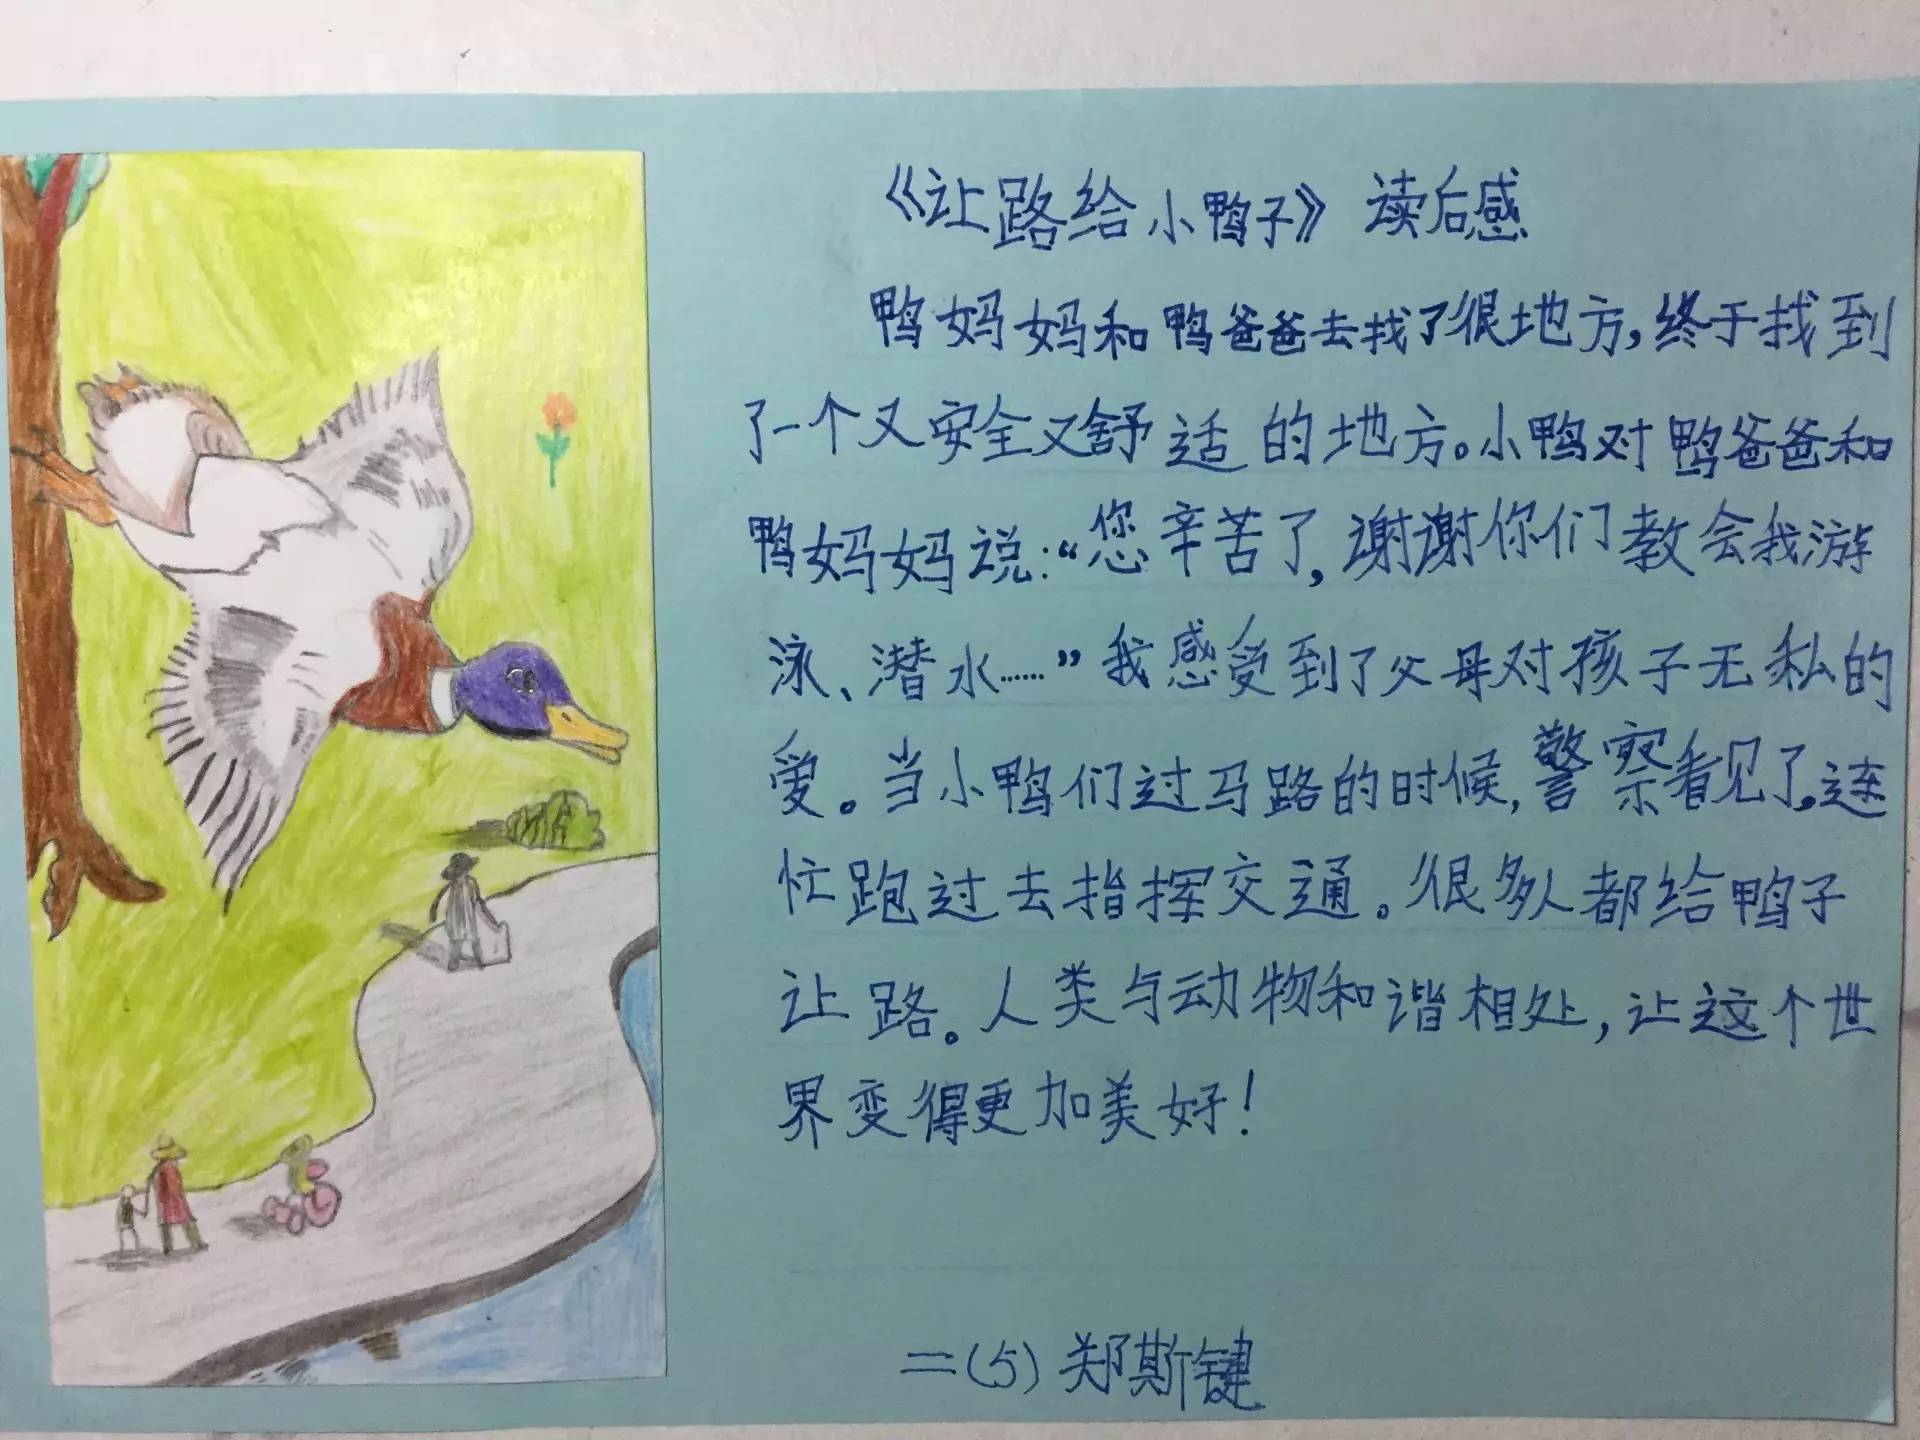 《让路给小鸭子》读后感
鸭妈妈和鸭爸爸去找了很地方,终于找到
了一个又安全又舒适的地方。小鸭对鸭爸爸和
鸭妈妈说:“您辛苦了,谢谢你们教会我游
泳、潜水……”我感受到了父母对孩子无私的
爱。当小鸭们过马路的时候,警察看见了,连
忙跑过去指挥交通。很多人都给鸭子
让路。人类与动物和谐相处,让这个世
界变得更加美好!
二(5)郑斯键